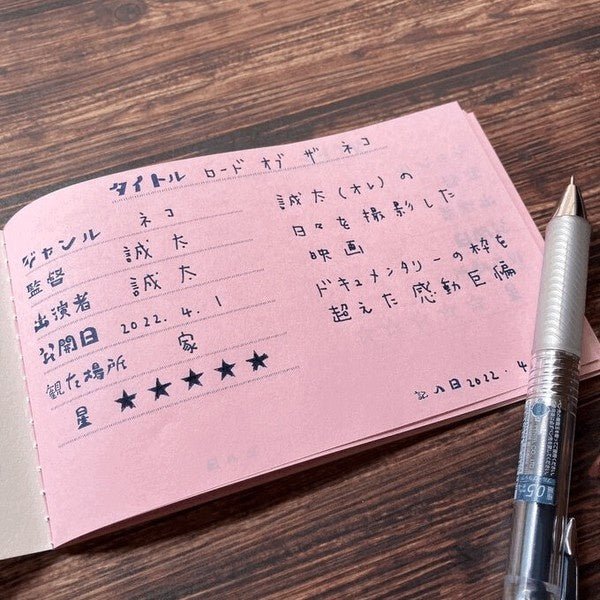 タイトル ロード オブ ザ ネコ
ジャンル ネコ
監督 誠太
出演者 誠太
公開日 2022.4.1
観た場所 家
星 ★★★★★
誠太(オレ)の
日々を撮影した
映画
ドキュメンタリーの枠を
超えた感動巨偏
記入日 2022.4.
0.5